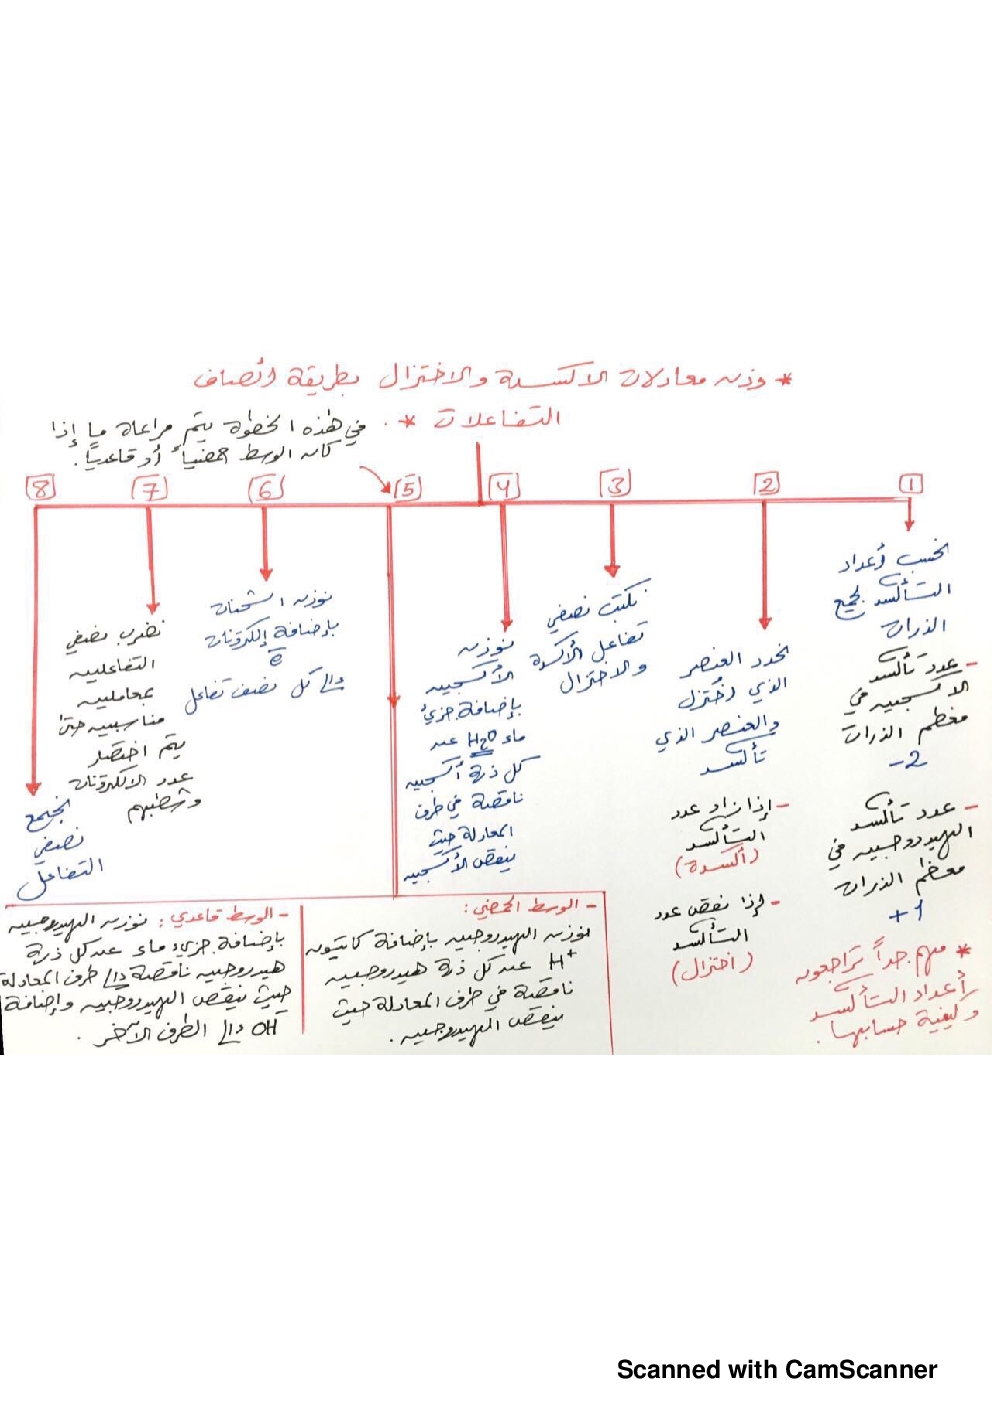 * وزن معادلات الأكسدة والاختزال بطريقة أنصاف
التفاعلات *
في هذه الخطوة يتم مراعاة ما إذا
كان الوسط حمضياً أو قاعدياً.
1
نحسب أعداد
التأكسد لجميع
الذرات
- عدد تأكسد
الأكسجين في
معظم الذرات
-2
- عدد تأكسد
الهيدروجين في
معظم الذرات
+1
* مهم جداً تراجعون
أعداد التأكسد
وكيفية حسابها.
2
نحدد العنصر
الذي اختزل
والعنصر الذي
تأكسد
- إذا زاد عدد
التأكسد
(أكسدة)
- إذا نقص عدد
التأكسد
(اختزال)
3
نكتب نصفي
تفاعل الأكسدة
والاختزال
4
نوزن
الأكسجين
بإضافة جزيء
ماء H2O عن
كل ذرة أكسجين
ناقصة في طرف
المعادلة حيث
ينقص الأكسجين
5
- الوسط الحمضي:
نوزن الهيدروجين بإضافة كاتيون
H+ عن كل ذرة هيدروجين
ناقصة في طرف المعادلة حيث
ينقص الهيدروجين.
- الوسط قاعدي: نوزن الهيدروجين
بإضافة جزيء ماء عن كل ذرة
هيدروجين ناقصة إلى طرف المعادلة
حيث ينقص الهيدروجين وإضافة
OH إلى الطرف الآخر.
6
نوزن الشحنات
بإضافة إلكترونات
e-
إلى كل نصف تفاعل
7
نضرب نصفي
التفاعلين
بمعاملين
مناسبين حتى
يتم اختصار
عدد الالكترونات
وشطبهم
8
نجمع
نصفي
التفاعل
Scanned with CamScanner